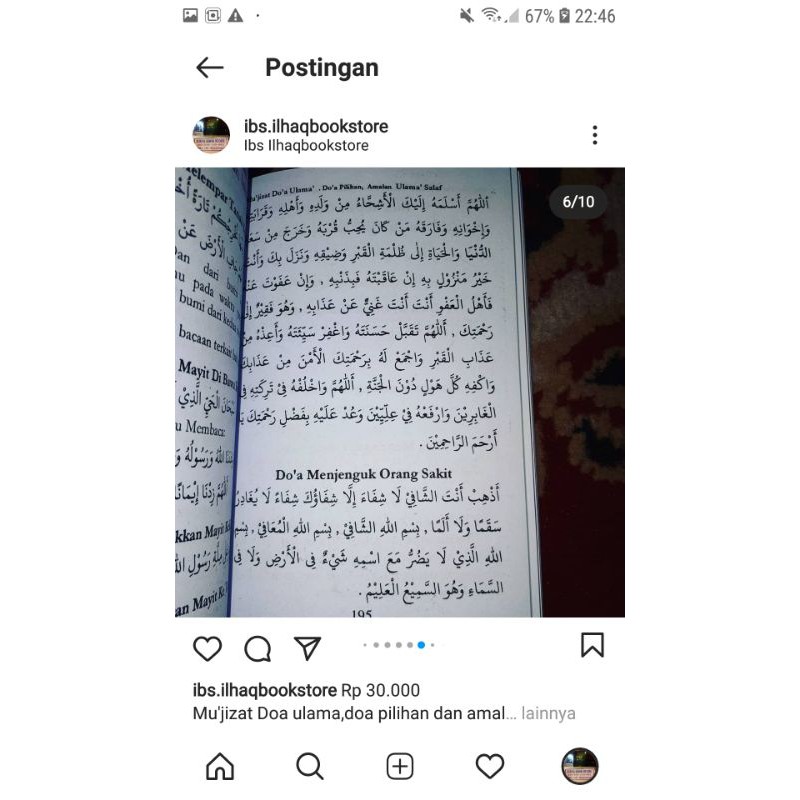 67% 22:46
Postingan
ibs.ilhaqbookstore
Ibs Ilhaqbookstore
6/10
Do'a Ulama' , Do'a Pilihan, Amalan Ulama' Salaf
اَللّٰهُمَّ أَسْلَمَهُ إِلَيْكَ الْأَشِحَّاءُ مِنْ وَلَدِهِ وَأَهْلِهِ
وَإِخْوَانِهِ وَفَارَقَهُ مَنْ كَانَ يُحِبُّ قُرْبَهُ وَخَرَجَ مِنْ
الدُّنْيَا وَالْحَيَاةِ إِلَى ظُلْمَةِ الْقَبْرِ وَضِيْقِهِ وَنَزَلَ بِكَ
خَيْرُ مَنْزُوْلٍ بِهِ إِنْ عَاقَبْتَهُ فَبِذَنْبِهِ , وَإِنْ عَفَوْتَ
فَأَهْلُ الْعَفْوِ أَنْتَ أَنْتَ غَنِيٌّ عَنْ عَذَابِهِ , وَهُوَ فَقِيْرٌ
رَحْمَتِكَ , اَللّٰهُمَّ تَقَبَّلْ حَسَنَتَهُ وَاغْفِرْ سَيِّئَتَهُ وَأَعِذْهُ
عَذَابِ الْقَبْرِ وَاجْمَعْ لَهُ بِرَحْمَتِكَ الْأَمْنَ مِنْ عَذَابِكَ
وَاكْفِهِ كُلَّ هَوْلٍ دُوْنَ الْجَنَّةِ , اَللّٰهُمَّ وَاخْلُفْهُ فِيْ تَرِكَتِهِ
الْغَابِرِيْنَ وَارْفَعْهُ فِيْ عِلِّيِّيْنَ وَعُدْ عَلَيْهِ بِفَضْلِ رَحْمَتِكَ
أَرْحَمَ الرَّاحِمِيْنَ .
Do'a Menjenguk Orang Sakit
أَذْهِبْ أَنْتَ الشَّافِيْ لَا شِفَاءَ إِلَّا شِفَاؤُكَ شِفَاءً لَا يُغَادِرُ
سَقَمًا وَلَا أَلَمًا , بِسْمِ اللهِ الشَّافِيْ , بِسْمِ اللهِ الْمُعَافِيْ , بِسْمِ
اللهِ الَّذِيْ لَا يَضُرُّ مَعَ اسْمِهِ شَيْءٌ فِى الْأَرْضِ وَلَا فِى
السَّمَاءِ وَهُوَ السَّمِيْعُ الْعَلِيْمُ .
195
dari
pada
bumi dari
bacaan
Mayit Di
Membaca:
Mayit
Mayit
ibs.ilhaqbookstore Rp 30.000
Mu'jizat Doa ulama,doa pilihan dan amal... lainnya